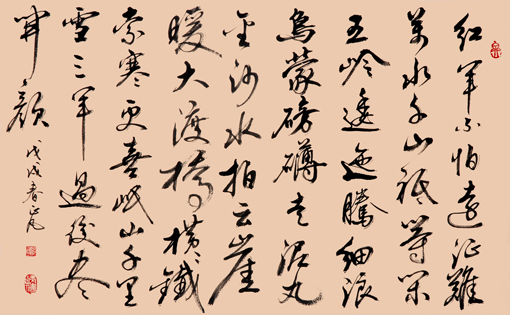 红军不怕遠征難
萬水千山祗等闲
五岭逶迤騰细浪
烏蒙磅礴走泥丸
金沙水拍云崖
暖大渡橋横鐵
索寒更喜岷山千里
雪三军過後尽
開颜
戊戌春